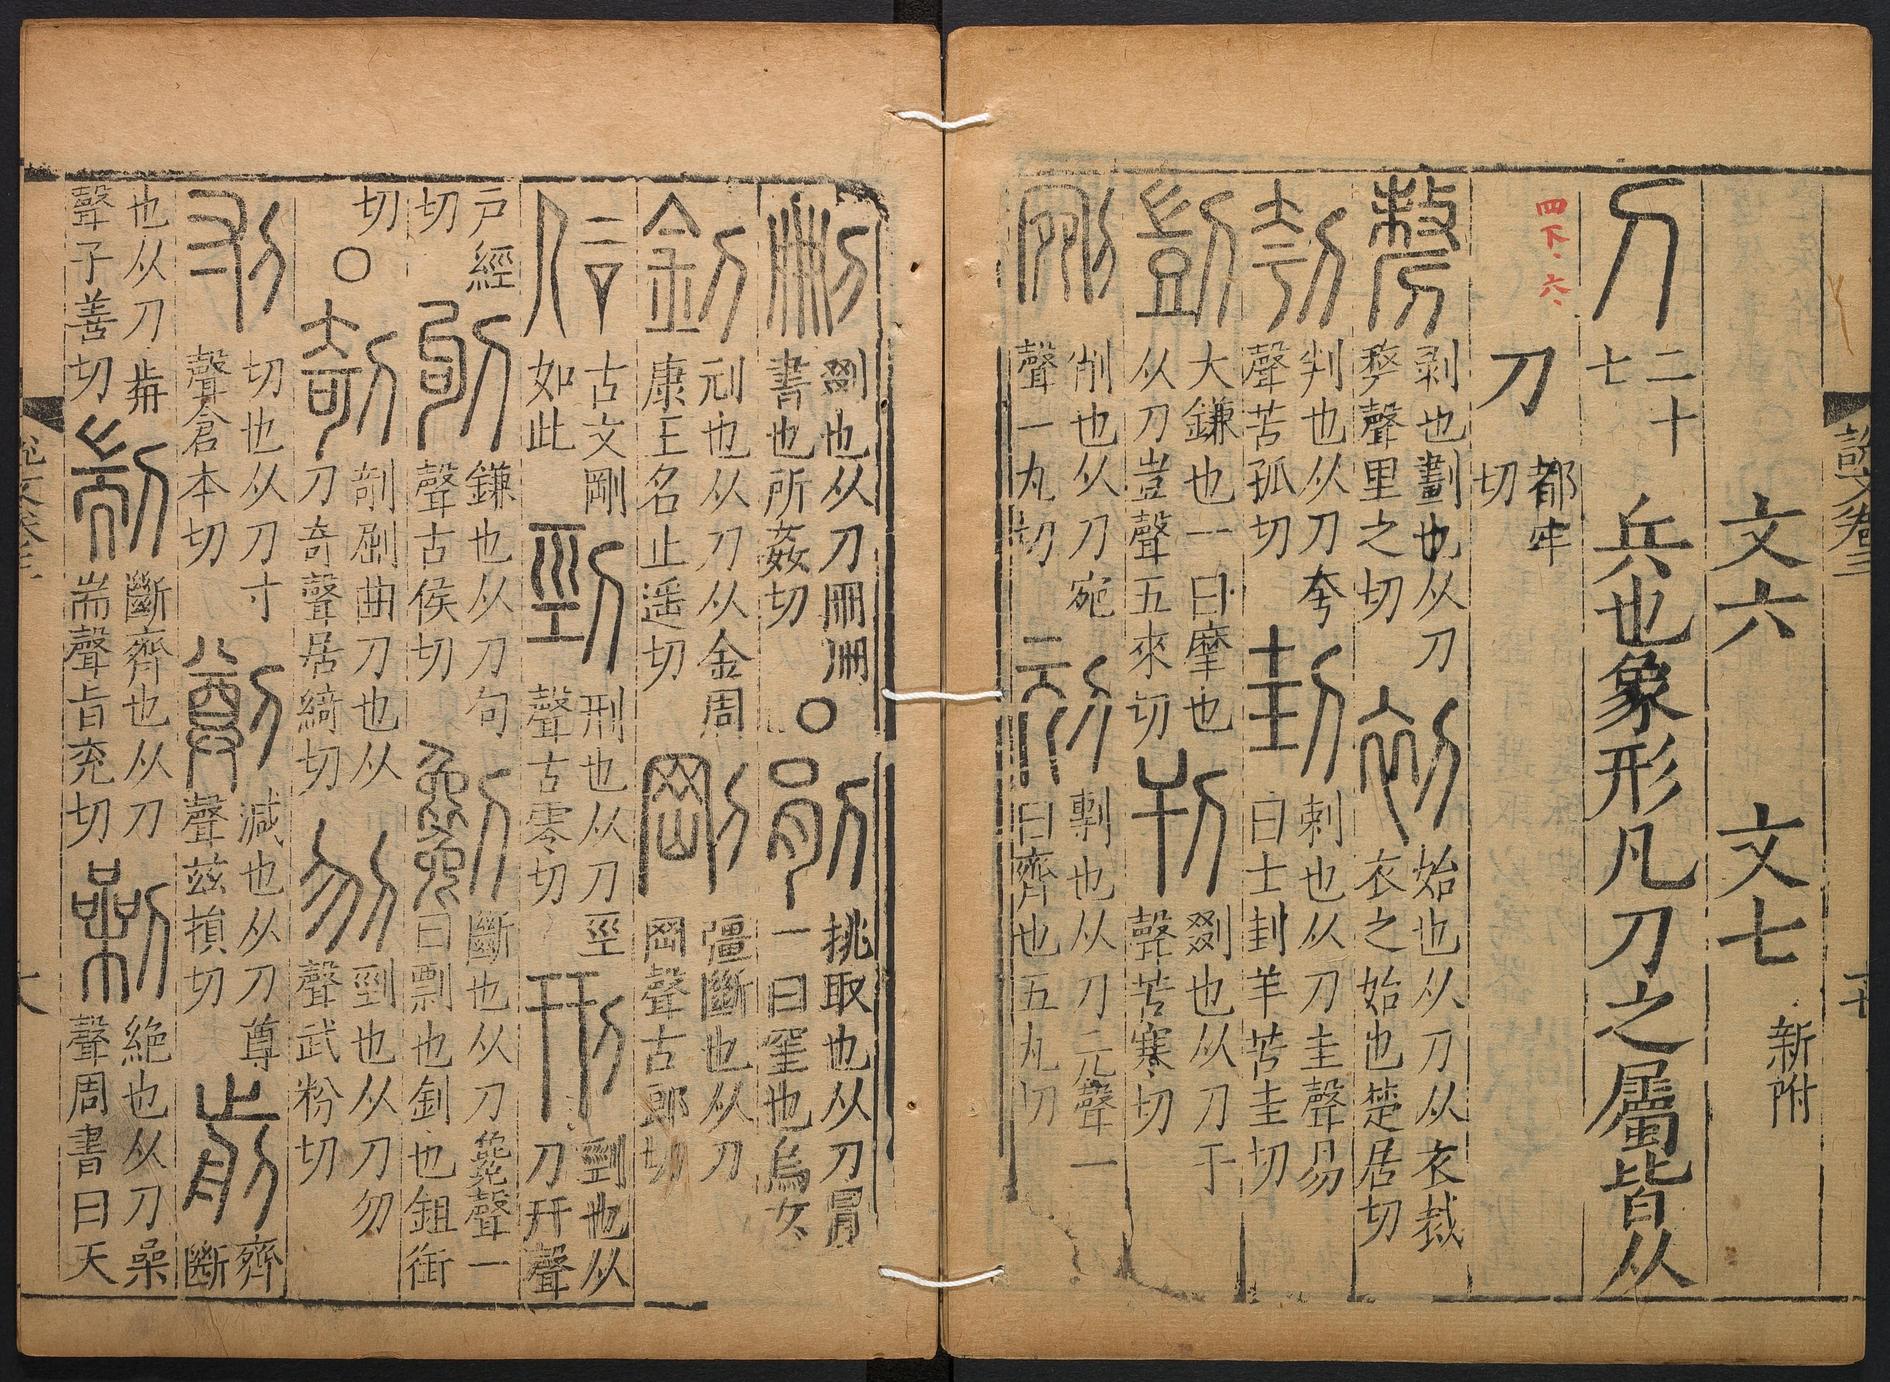 文六 文七 新附
刀 二十七 兵也象形凡刀之屬皆从
刀 都牢切
四下、六、
剺 剥也劃也从刀𠩺聲里之切 初 始也从刀从衣裁衣之始也楚居切
刳 判也从刀夸聲苦孤切 刲 刺也从刀圭聲易曰士封羊苦圭切
剴 大鎌也一曰摩也从刀豈聲五來切 刊 剟也从刀干聲苦寒切
剜 削也从刀宛聲一丸切 刓 剸也从刀元聲一曰齊也五丸切
刪 剟也从刀冊冊書也所姦切 ○ 剈 挑取也从刀肙一曰窐也烏玄
釗 刓也从刀从金周康王名止遥切 剛 彊斷也从刀岡聲古郎切
信 古文剛如此 剄 刑也从刀巠聲古零切 刑 剄也从刀幵聲
户經切 鎌也从刀句聲古侯切 劖 斷也从刀毚聲一曰剽也釗也鉏銜
切 ○ 剞 剞劂曲刀也从刀奇聲居綺切 刎 剄也从刀勿聲武粉切
刌 切也从刀寸聲倉本切 減也从刀尊聲兹損切 前 齊斷
也从刀歬聲子善切 剬 斷齊也从刀耑聲旨兖切 絶也从刀喿聲周書曰天
說文卷三